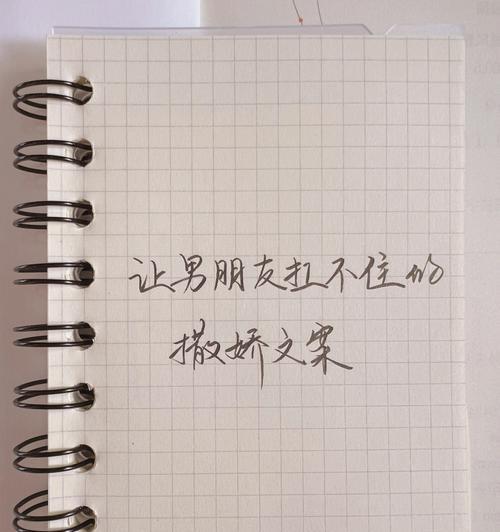 让男朋友扛不住的
撒娇文案